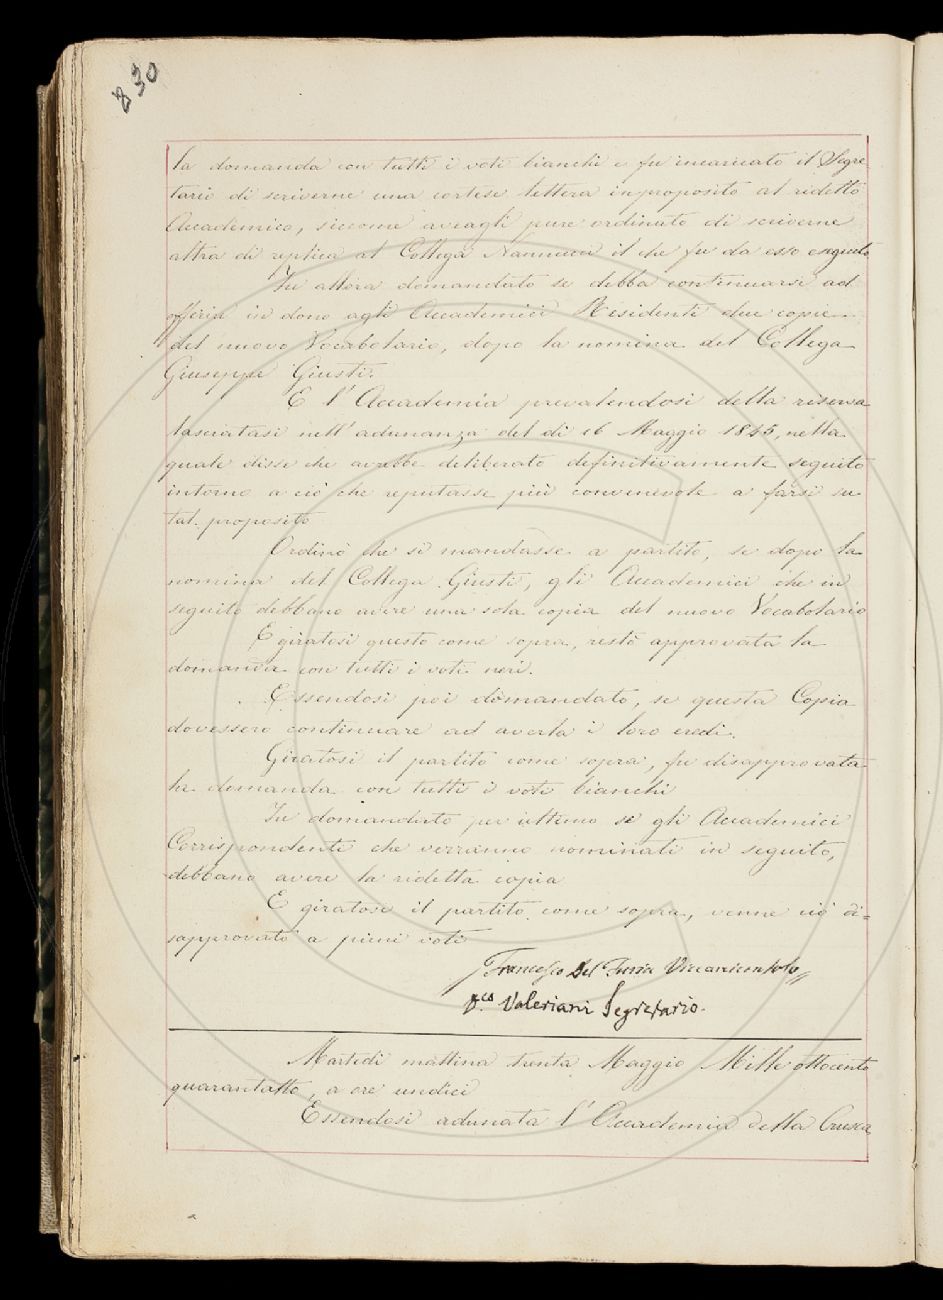 830
la domanda con tutti i voti bianchi e fu incaricato il Segre
tario di scriverne una cortese lettera in proposito al ridetto
Accademico, siccome aveagli pure ordinato di scriverne
altra di replica al Collega Nannucci il che fu da esso eseguito
Fu allora domandato se debba continuarsi ad
offerire in dono agli Accademici Residenti due copie
del nuovo Vocabolario, dopo la nomina del Collega
Giuseppe Giusti.
E l'Accademia prevalendosi della riserva
lasciatasi nell'adunanza del dì 16 Maggio 1845, nella
quale disse che avrebbe deliberato definitivamente seguito
intorno a ciò che reputasse più convenevole a farsi su
tal proposito
Ordinò che si mandasse a partito, se dopo la
nomina del Collega Giusti, gli Accademici che in
seguito debbano avere una sola copia del nuovo Vocabolario
E giratosi questo come sopra, restò approvata la
domanda con tutti i voti neri.
Essendosi poi domandato, se questa Copia
dovessero continuare ad averla i loro eredi.
Giratosi il partito come sopra, fu disapprovata
la domanda con tutti i voti bianchi
Fu domandato per ultimo se gli Accademici
Corrispondenti che verranno nominati in seguito,
debbano avere la ridetta copia
E giratosi il partito come sopra, venne ciò di=
sapprovato a pieni voti
Francesco Del Furia Vicearciconsolo
D.co Valeriani Segretario.
Martedì mattina trenta Maggio Mille ottocento
quarantotto, a ore undici
Essendosi adunata l'Accademia della Crusca